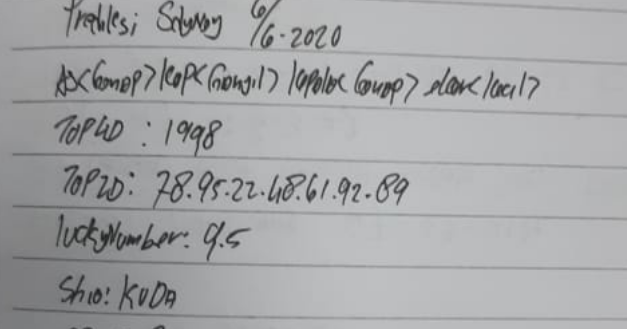 Prediksi Sydney 6/6-2020
AS<Genap>KOP<Ganjil>kepala<Genap>ekor<kecil>
TOP4D : 1998
TOP2D: 78.95.22.48.61.92.89
luckyNumber: 9.5
Shio: KUDA